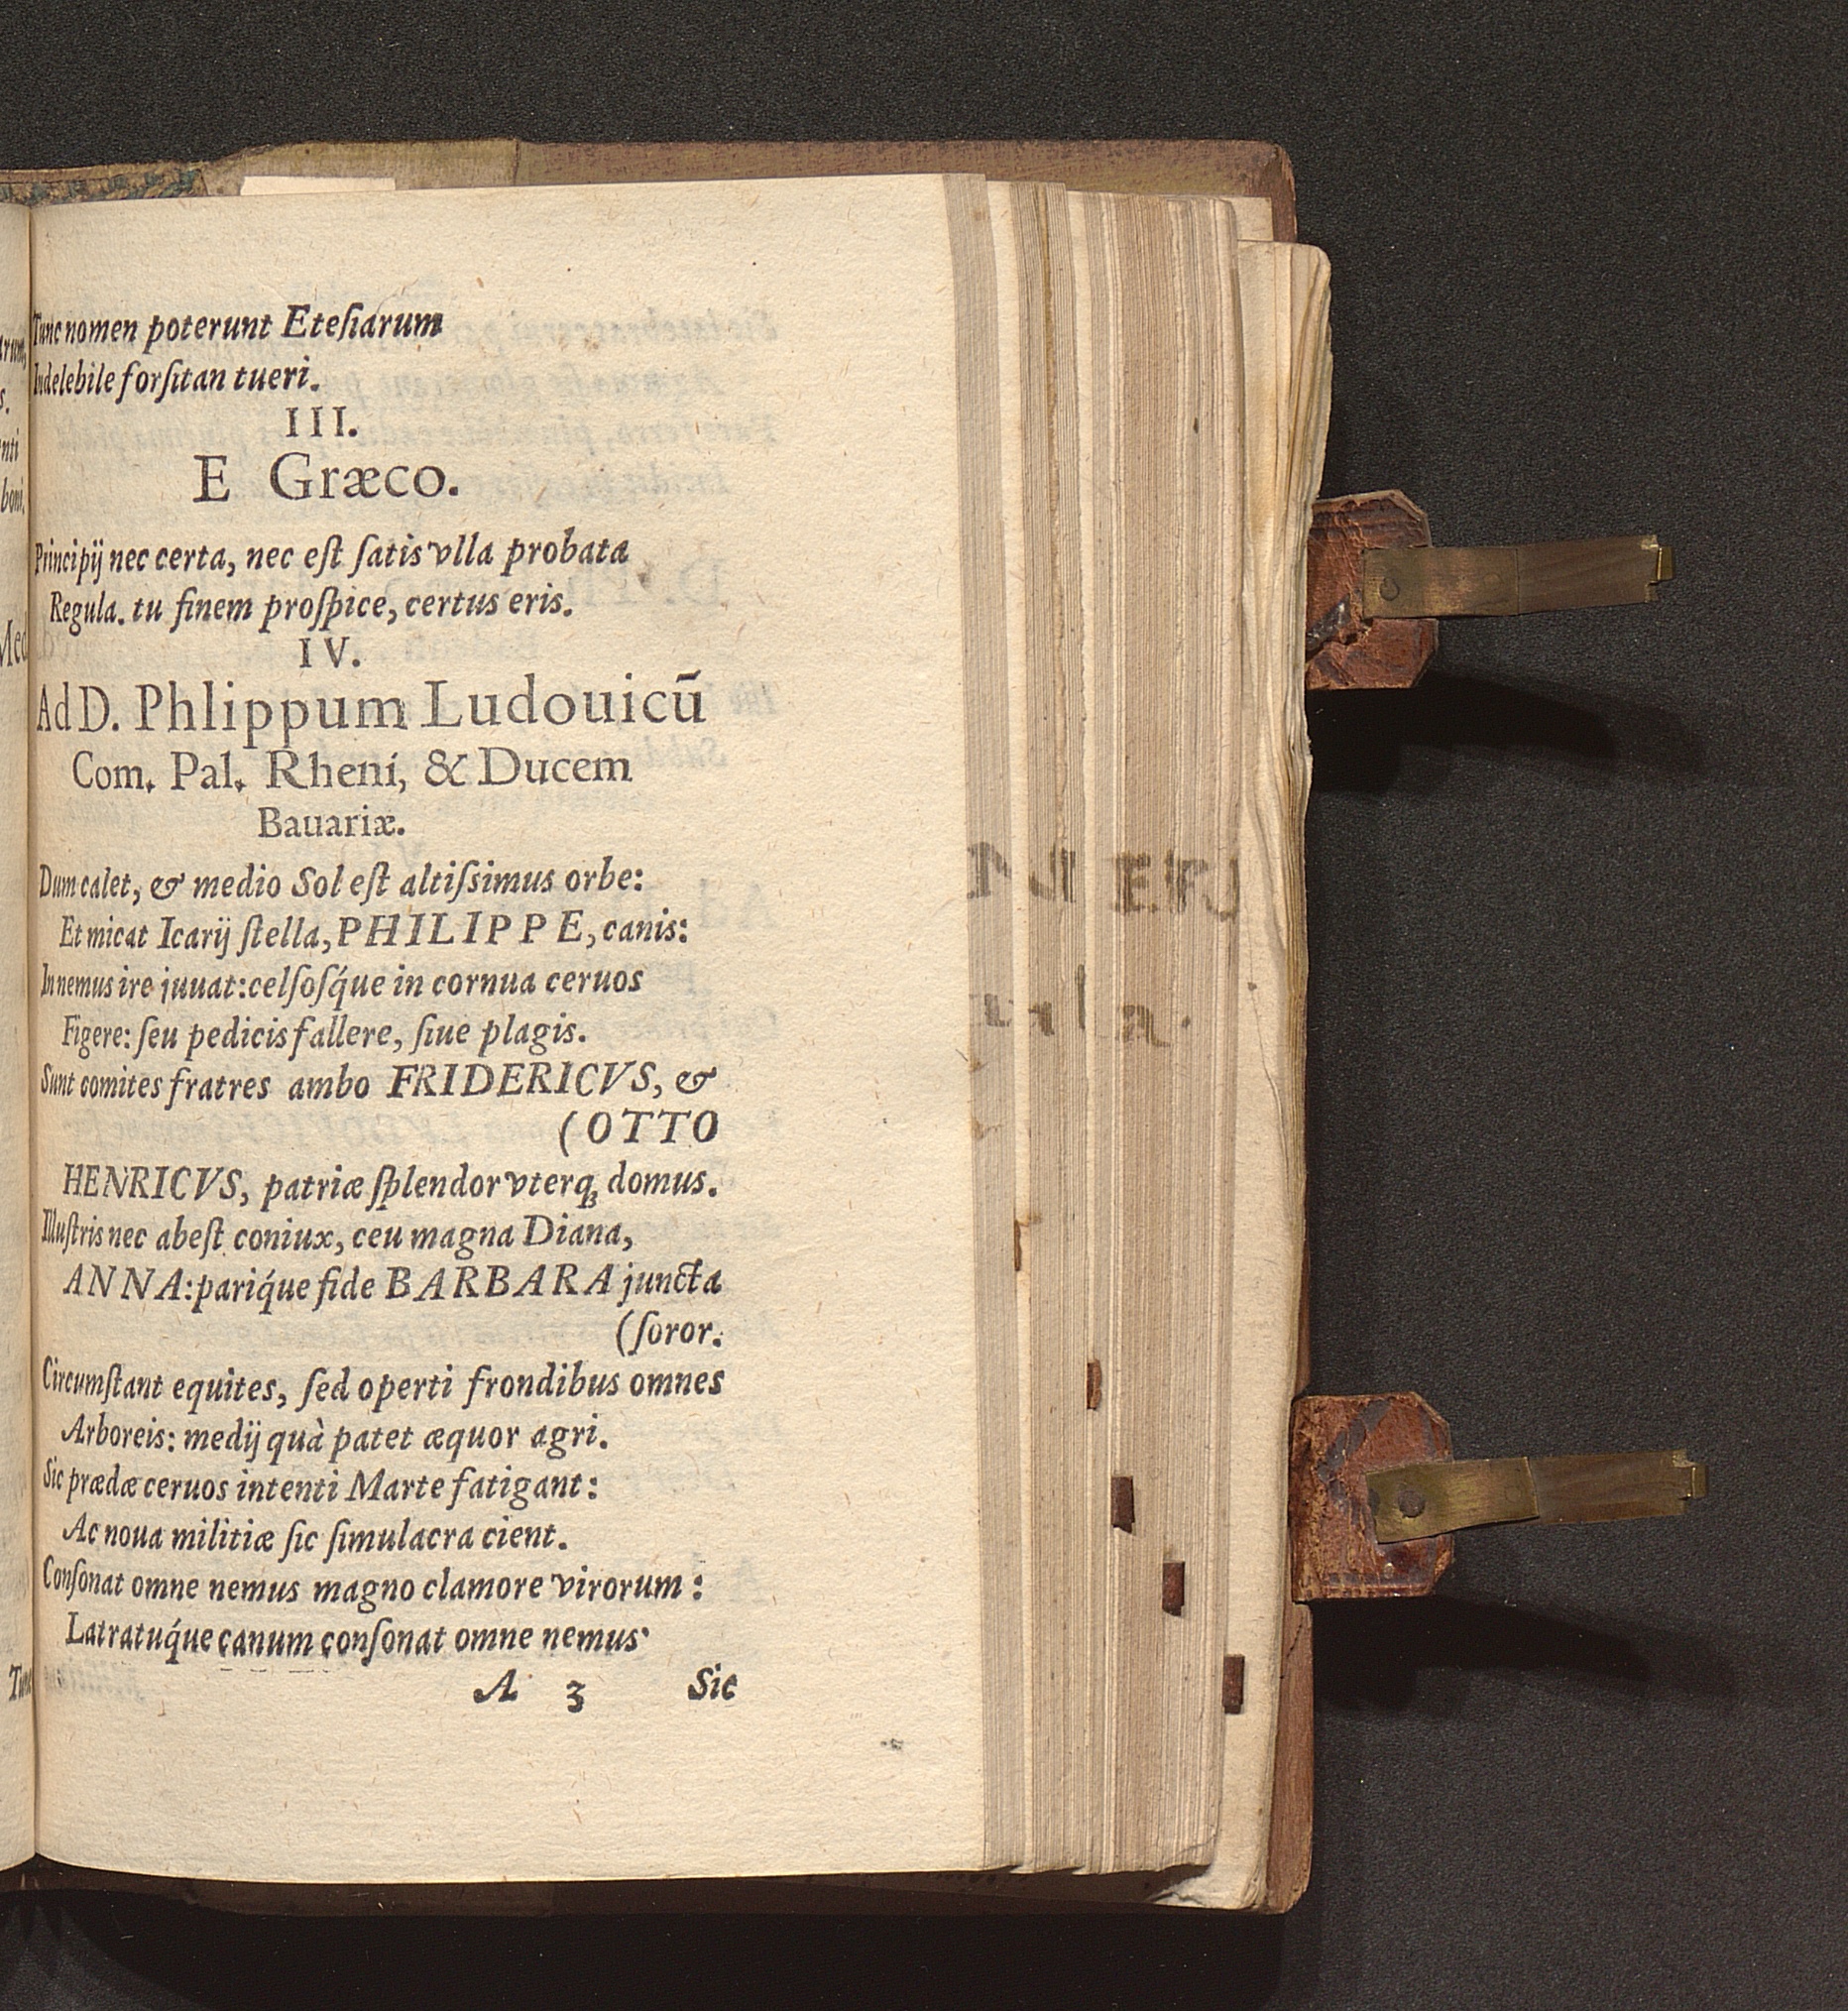 Tunc nomen poterunt Eteſiarum
Indelebile forſitan tueri.
III.
E Græco.
Principij nec certa, nec eſt ſatis vlla probata
Regula. tu finem proſpice, certus eris.
IV.
Ad D. Phlippum Ludouicū
Com. Pal. Rheni, & Ducem
Bauariæ.
Dum calet, & medio Sol eſt altiſsimus orbe:
Et micat Icarij ſtella, PHILIPPE, canis:
In nemus ire juuat: celſoſq́ue in cornua ceruos
Figere: ſeu pedicis fallere, ſiue plagis.
Sunt comites fratres ambo FRIDERICVS, &
(OTTO
HENRICVS, patriæ ſplendor vterq; domus.
Illuſtris nec abeſt coniux, ceu magna Diana,
ANNA: pariq́ue fide BARBARA juncta
(ſoror.
Circumſtant equites, ſed operti frondibus omnes
Arboreis: medij quà patet æquor agri.
Sic prædæ ceruos intenti Marte fatigant:
Ac noua militiæ ſic ſimulacra cient.
Conſonat omne nemus magno clamore virorum:
Latratuq́ue canum conſonat omne nemus.
A 3 Sic